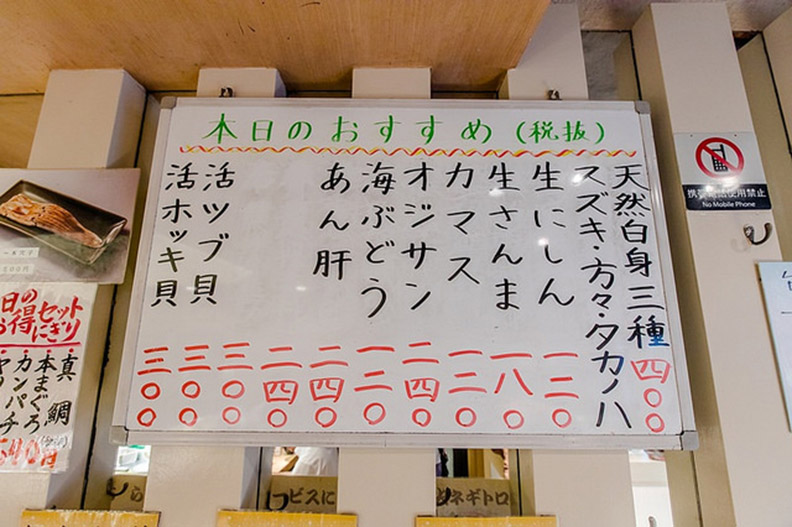 本日のおすすめ(税抜)
天然白身三種 四〇〇
スズキ・方々・タカノハ
生にしん 一二〇
生さんま 一八〇
カマス 一二〇
オジサン 二四〇
海ぶどう 一二〇
あん肝 二四〇
二四〇
三〇〇
活ツブ貝 三〇〇
活ホッキ貝 三〇〇
携帯電話使用禁止
No Mobile Phone
日の
お得セット
にぎり
・真鯛
・本まぐろ
・カンパチ
540円
ビスに
ネギトロ